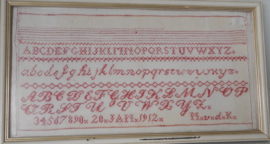 ABCDEFGHIJKLMNOPQRSTUVWXYZ.
abcdefghijklmnopqrstuvwxyz.
ABCDEFGHIJKLMNOP
QRSTUVWXYZ.
34567890. 20 JAN. 1912.